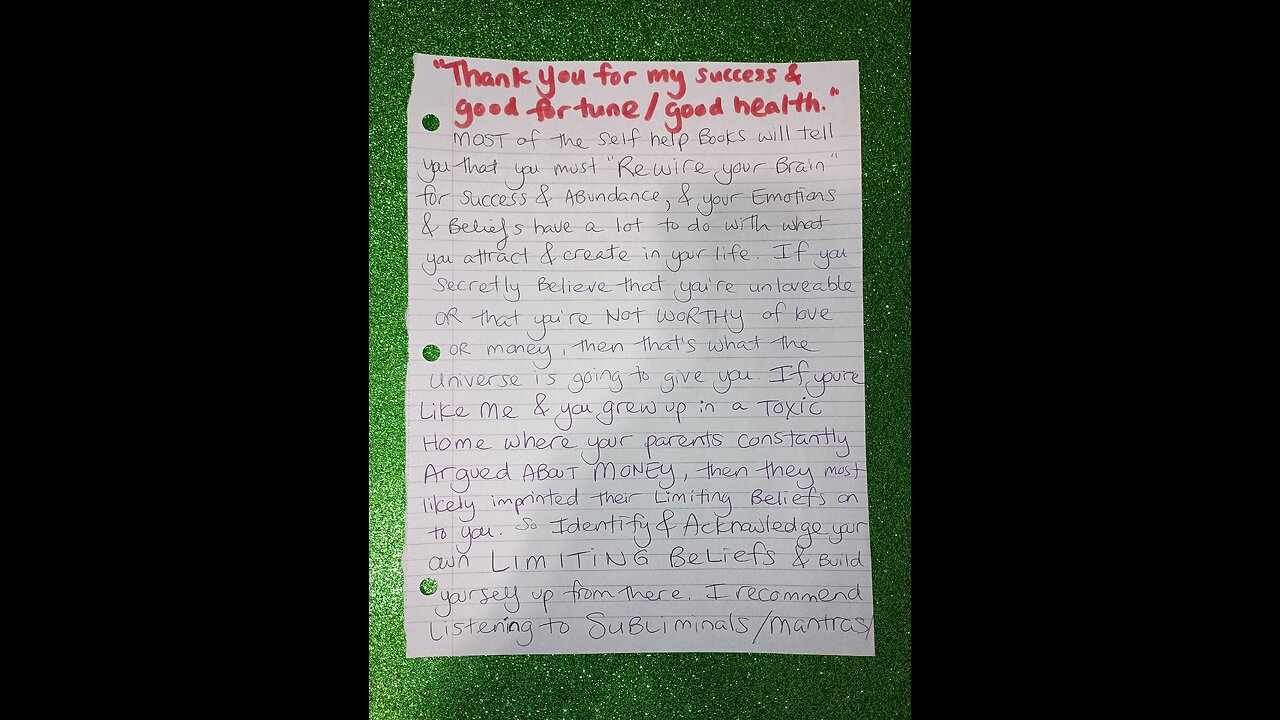 "Thank you for my success &
good fortune/good health."
MOST of the self help Books will tell
you that you must "Rewire your Brain"
for success & ABundance, & your Emotions
& Beliefs have a lot to do with what
you attract & create in your life. If you
secretly Believe that you're unloveable
OR that you're NOT WORTHY of love
OR money, then that's what the
universe is going to give you. If you're
Like Me & you grew up in a Toxic
Home where your parents constantly
Argued ABout MONEY, then they most
likely imprinted their Limiting Beliefs on
to you. So Identify & Acknowledge your
own LIMITING BELIEFS & Build
yourself up from there. I recommend
Listening to SUBLiminals/Mantras/